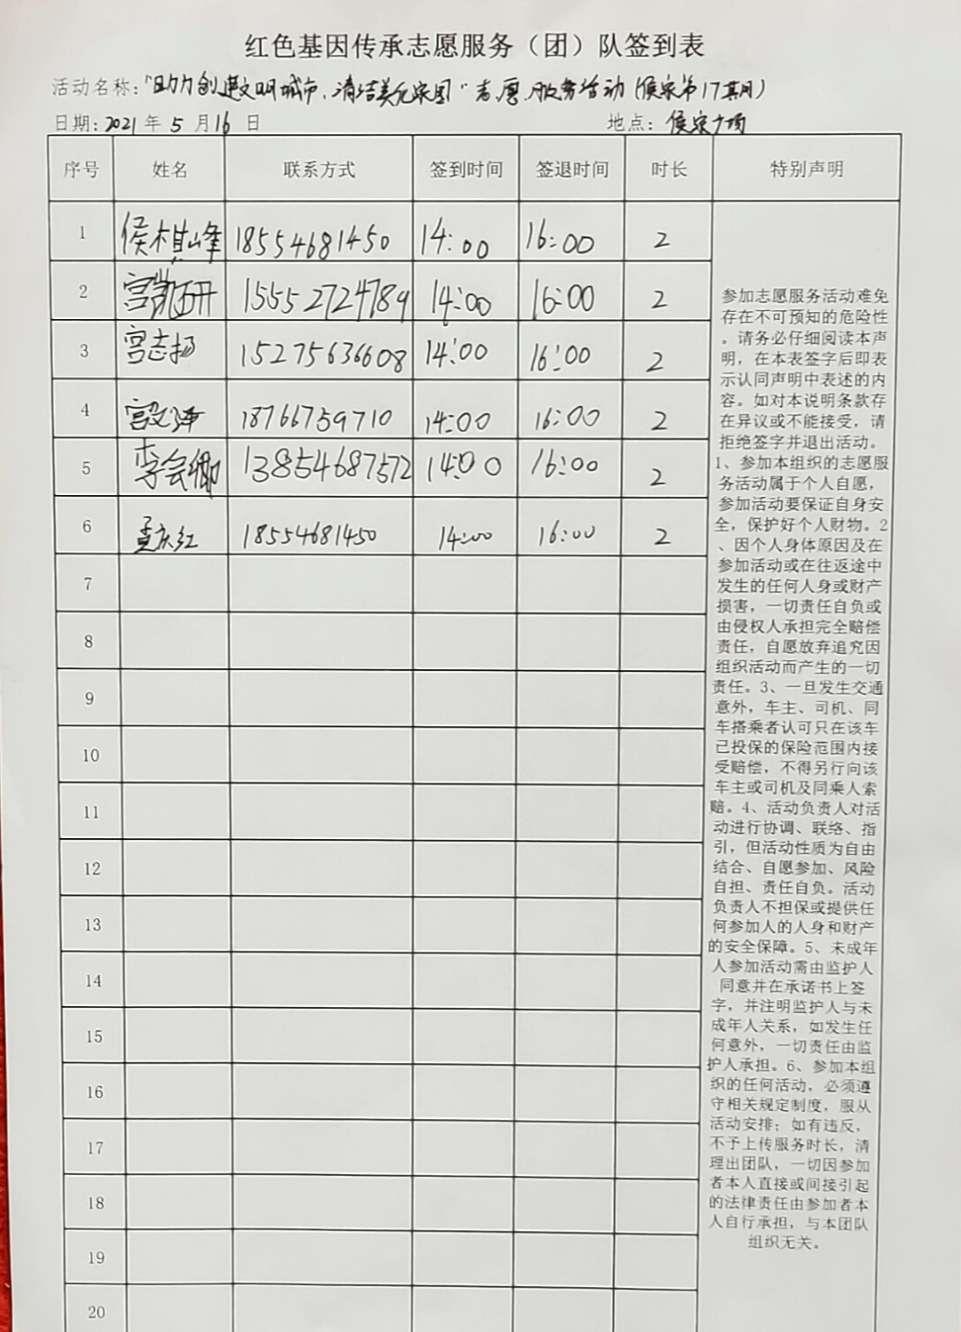 红色基因传承志愿服务（团）队签到表
活动名称："助力创建文明城市、清洁美化家园"志愿服务活动(侯家第17期)
日期：2021年5月16日 地点：侯家广场
序号 姓名 联系方式 签到时间 签退时间 时长 特别声明
1 侯棋峰 18554681450 14:00 16:00 2
2 宫凯研 15552724789 14:00 16:00 2
3 宫志扬 15275636608 14:00 16:00 2
4 18766759710 14:00 16:00 2
5 李会卿 13854687572 14:00 16:00 2
6 孟庆红 18554681450 14:00 16:00 2
7
8
9
10
11
12
13
14
15
16
17
18
19
20
参加志愿服务活动难免
存在不可预知的危险性
。请务必仔细阅读本声
明，在本表签字后即表
示认同声明中表述的内
容。如对本说明条款存
在异议或不能接受，请
拒绝签字并退出活动。
1、参加本组织的志愿服
务活动属于个人自愿，
参加活动要保证自身安
全，保护好个人财物。2
、因个人身体原因及在
参加活动或在往返途中
发生的任何人身或财产
损害，一切责任自负或
由侵权人承担完全赔偿
责任，自愿放弃追究因
组织活动而产生的一切
责任。3、一旦发生交通
意外，车主、司机、同
车搭乘者认可只在该车
已投保的保险范围内接
受赔偿，不得另行向该
车主或司机及同乘人索
赔。4、活动负责人对活
动进行协调、联络、指
引，但活动性质为自由
结合、自愿参加、风险
自担、责任自负。活动
负责人不担保或提供任
何参加人的人身和财产
的安全保障。5、未成年
人参加活动需由监护人
同意并在承诺书上签
字，并注明监护人与未
成年人关系，如发生任
何意外，一切责任由监
护人承担。6、参加本组
织的任何活动，必须遵
守相关规定制度，服从
活动安排；如有违反，
不予上传服务时长，清
理出团队，一切因参加
者本人直接或间接引起
的法律责任由参加者本
人自行承担，与本团队
组织无关。